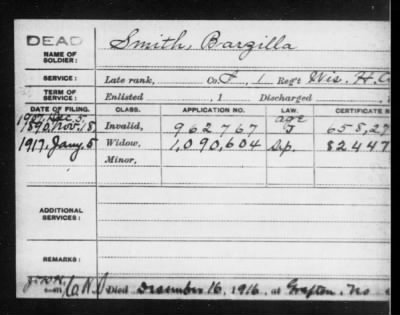 DEAD
NAME OF SOLDIER:
Smith, Bargilla
SERVICE:
Late rank, Co. F, 1 Regt Wis. H.
TERM OF SERVICE:
Enlisted , 1 Discharged
DATE OF FILING. CLASS. APPLICATION NO. LAW. CERTIFICATE N
1907, Dec 5 age
1890, Nov. 18 Invalid, 962767 J 655,27
1917, Jany. 5 Widow, 1,090,604 Sep. 82447
Minor,
ADDITIONAL SERVICES:
REMARKS:
Died December 16, 1916, at Grafton,